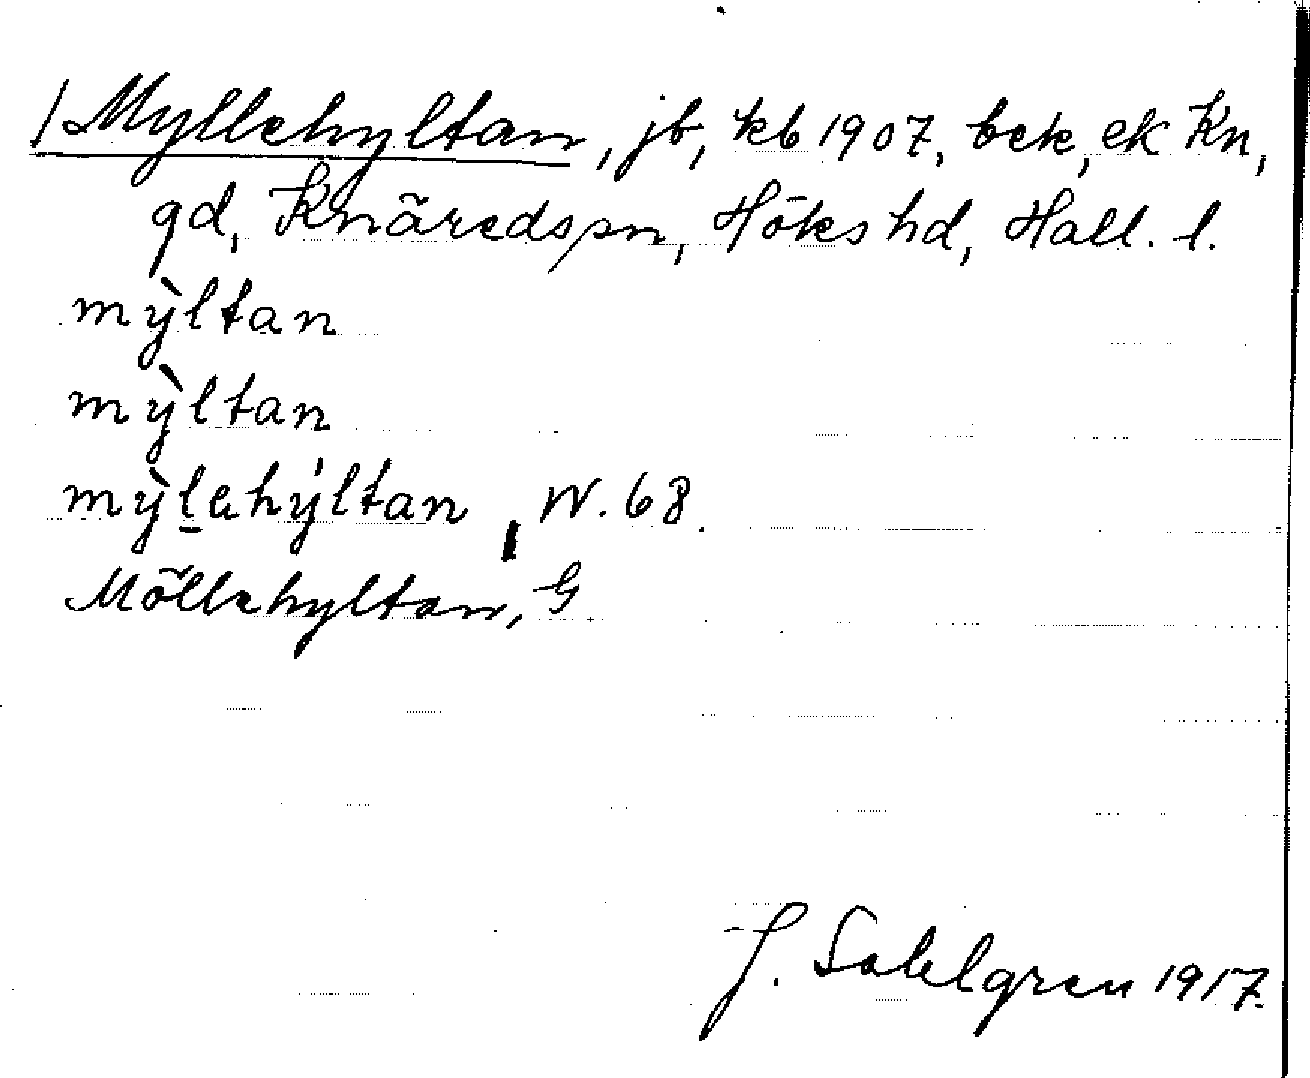 /Myllehyltan, jb, kb 1907, bek, ek Kn,
gd, Knäredspn, Höks hd, Hall. l.
my̍̀ltan
mỳltan
mỳl̲ehýltan, W. 68.
Möllehyltan, G
J. Sahlgren 1917.